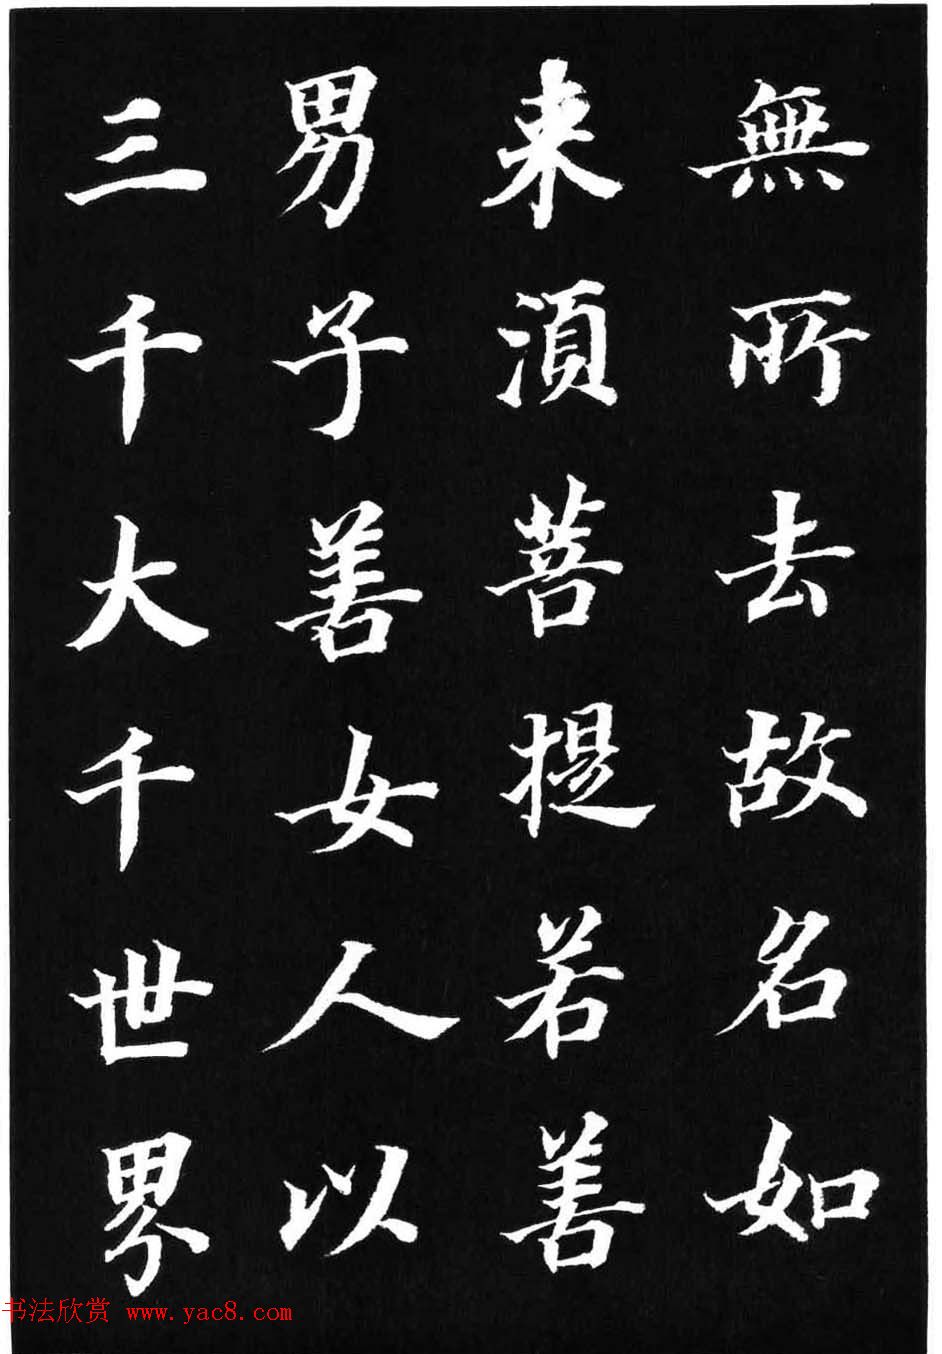 無所去故名如
来湏菩提若善
男子善女人以
三千大千世界
书法欣赏 www.yac8.com